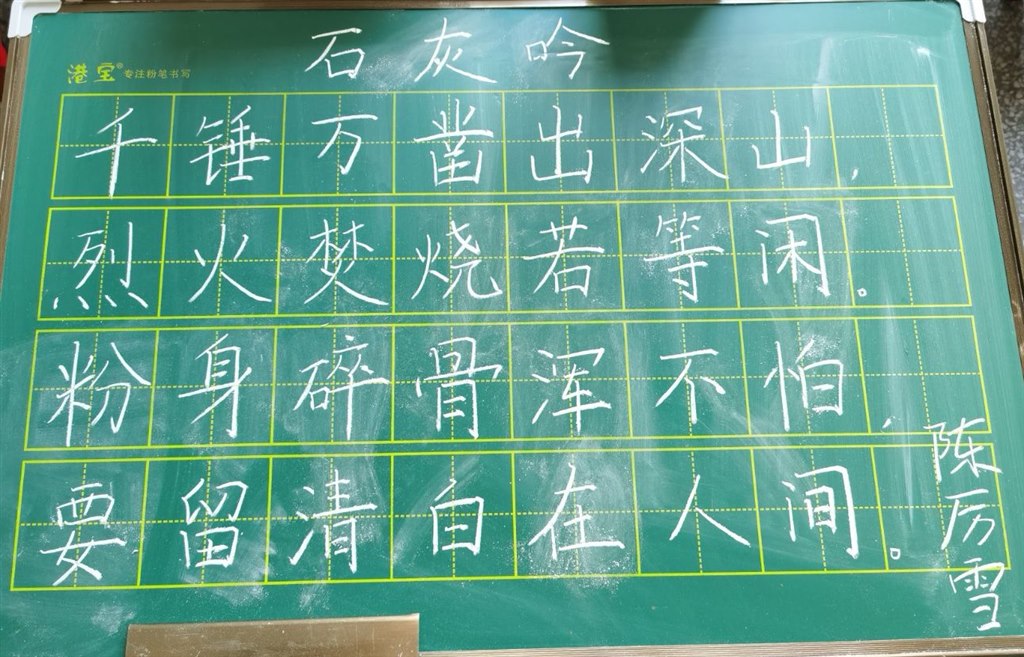 石灰吟
港宝® 专注粉笔书写
千锤万凿出深山，
烈火焚烧若等闲。
粉身碎骨浑不怕，
要留清白在人间。
陈厉雪